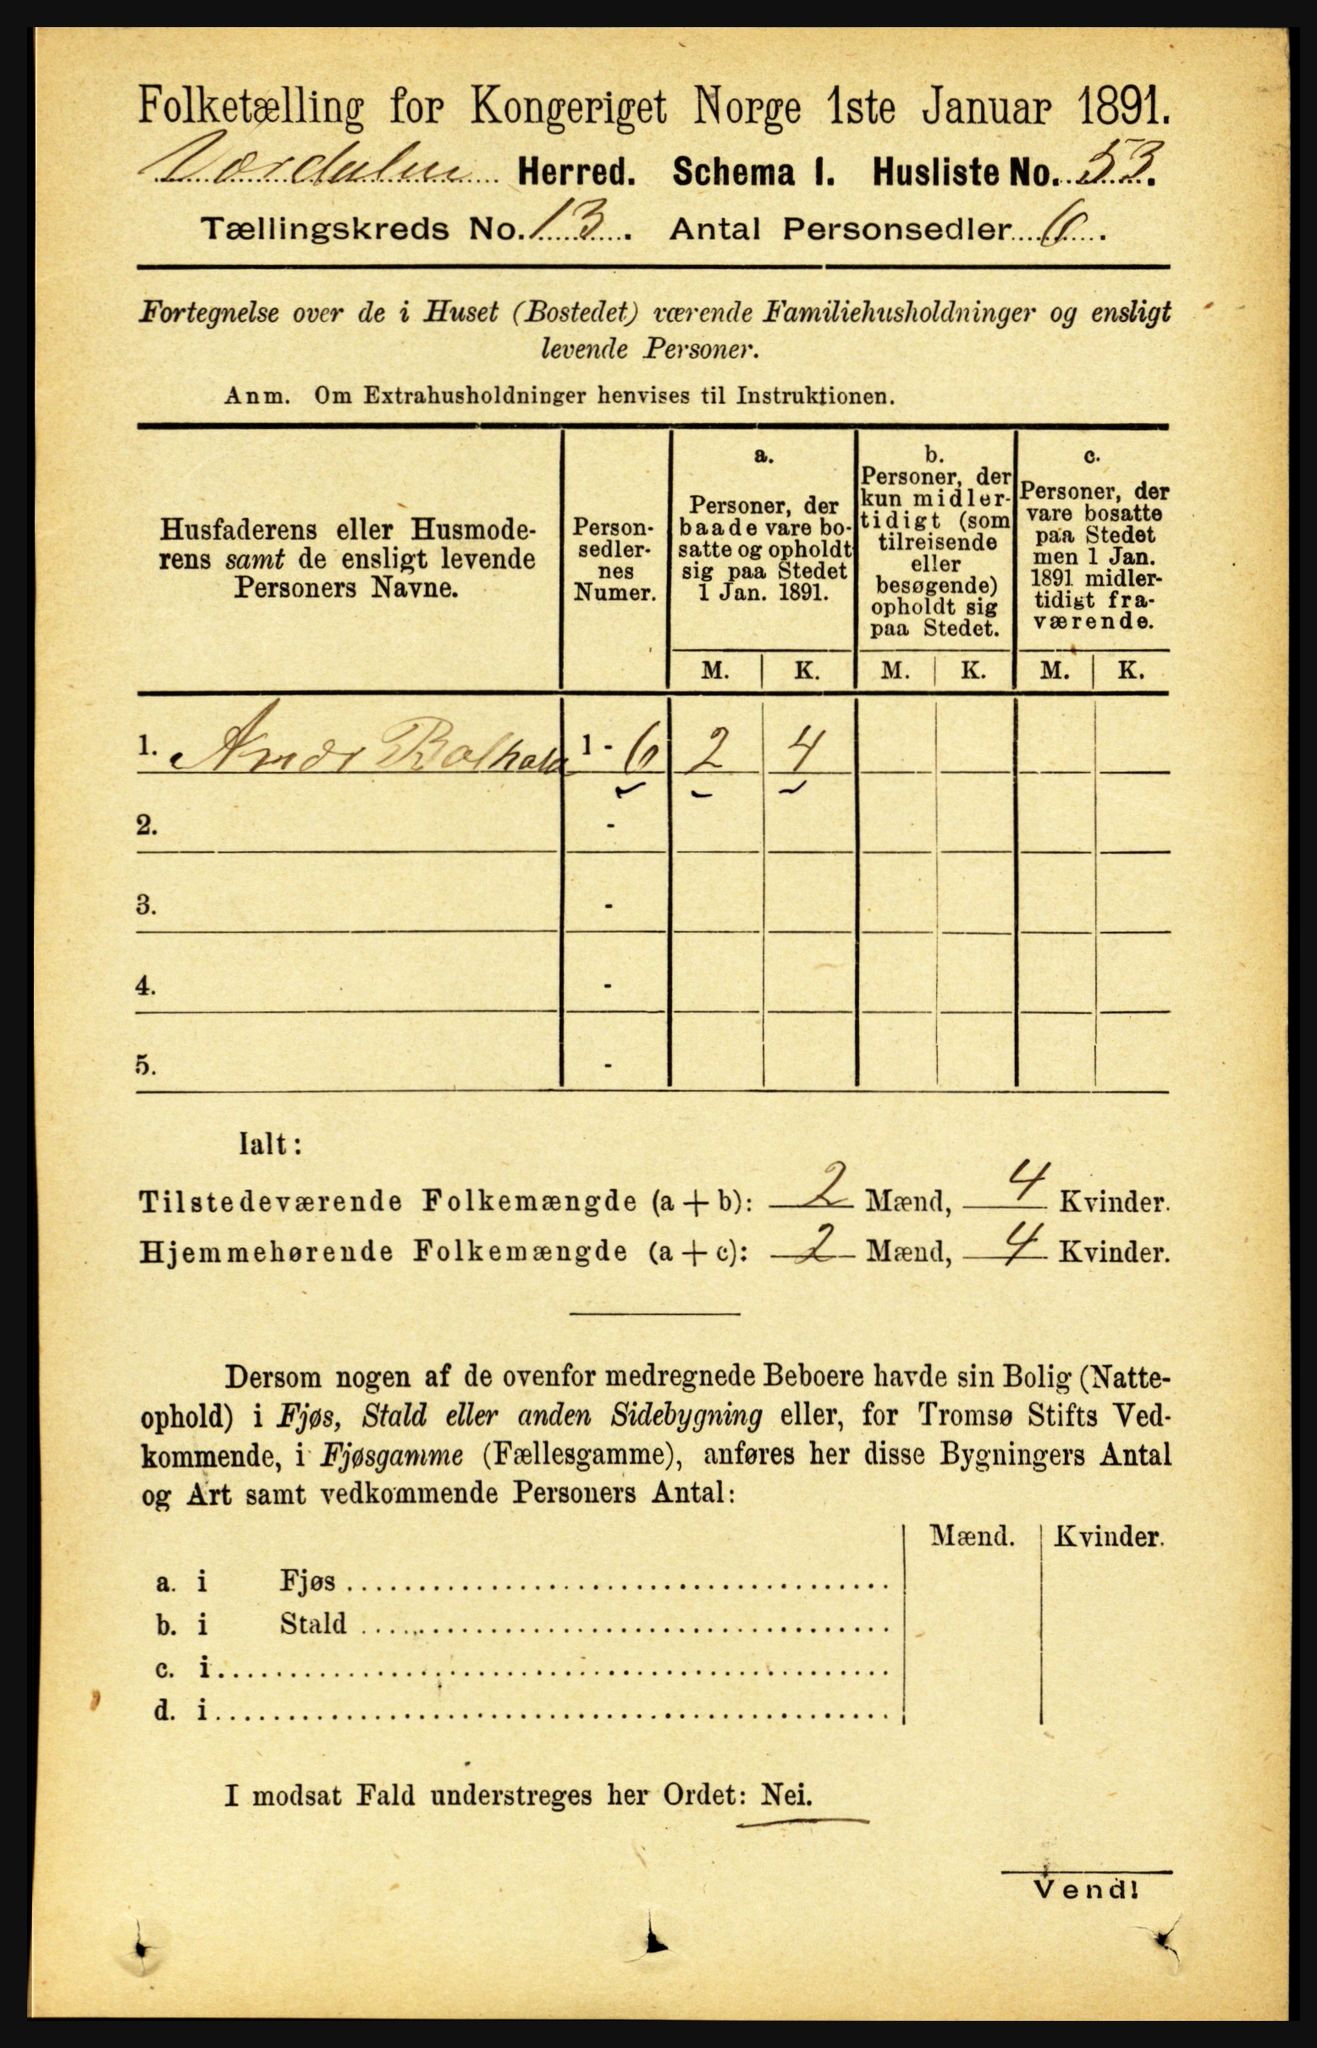 Folketælling for Kongeriget Norge 1ste Januar 1891.
Værdalen Herred. Schema I. Husliste No. 53.
Tællingskreds No. 13. Antal Personsedler 6.
Fortegnelse over de i Huset (Bostedet) værende Familiehusholdninger og ensligt
levende Personer.
Anm. Om Extrahusholdninger henvises til Instruktionen.
Husfaderens eller Husmode-
rens samt de ensligt levende
Personers Navne.
Person-
sedler-
nes
Numer.
a.
Personer, der
baade vare bo-
satte og opholdt
sig paa Stedet
1 Jan. 1891.
b.
Personer, der
kun midler-
tidigt (som
tilreisende
eller
besøgende)
opholdt sig
paa Stedet.
c.
Personer, der
vare bosatte
paa Stedet
men 1 Jan.
1891 midler-
tidigt fra-
værende.
M. K. M. K. M. K.
1. 1 - 6 2 4
2. -
3. -
4. -
5. -
Ialt:
Tilstedeværende Folkemængde (a + b): 2 Mænd, 4 Kvinder.
Hjemmehørende Folkemængde (a + c): 2 Mænd, 4 Kvinder.
Dersom nogen af de ovenfor medregnede Beboere havde sin Bolig (Natte-
ophold) i Fjøs, Stald eller anden Sidebygning eller, for Tromsø Stifts Ved-
kommende, i Fjøsgamme (Fællesgamme), anføres her disse Bygningers Antal
og Art samt vedkommende Personers Antal:
Mænd. Kvinder.
a. i Fjøs
b. i Stald
c. i
d. i
I modsat Fald understreges her Ordet: Nei.
Vend!